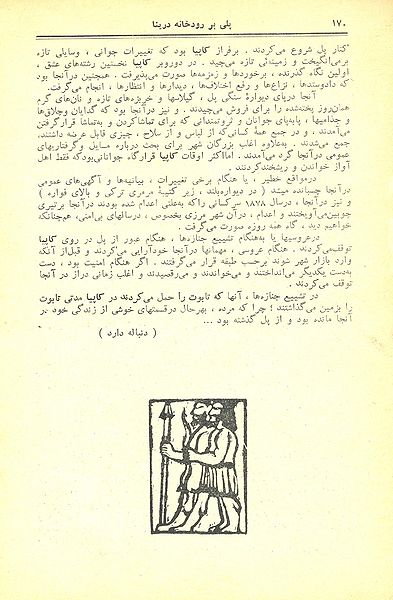 ۱۷۰ پلی بر رودخانه درینا
کنار پل شروع می‌کردند . برفراز کاپیا بود که تغییرات جوانی ، وسایلی تازه
برمی‌انگیخت و زمینه‌ئی تازه می‌چید . در دوروبر کاپیا نخستین رشته‌های عشق ،
اولین نگاه گذرنده ، برخوردها و زمزمه‌ها صورت می‌پذیرفت . همچنین درآنجا بود
که دادوستدها ، نزاع‌ها و رفع اختلاف‌ها ، دیدارها و انتظارها ، انجام می‌گرفت.
آنجا درپای دیوارهٔ سنگی پل ، گیلاسها و خربزه‌های تازه و نان‌های گرم
همان‌روز پخته‌شده را برای فروش می‌چیدند . و نیز درآنجا بود که گدایان وچلاق‌ها
و جذامیها ، پابه‌پای جوانان و ثروتمندانی که برای تماشاکردن و به‌تماشا قرارگرفتن
می‌آمدند ، و در جمع همهٔ کسانی‌که از لباس و از سلاح ، چیزی قابل عرضه داشتند،
جمع می‌شدند . به‌علاوه اغلب بزرگان شهر برای بحث درباره مسایل وگرفتاریهای
عمومی درآنجا گرد می‌آمدند . امااکثر اوقات کاپیا قرارگاه جوانانی‌بودکه فقط اهل
آواز خواندن و ریشخندکردنند .
درمواقع خطیر ، یا هنگام برخی تغییرات ، بیانیه‌ها و آگهی‌های عمومی
درآنجا چسبانده میشد ( در دیواره‌بلند ، زیر کتیبهٔ مرمری ترکی و بالای فواره )
و نیز درآنجا ، درسال ۱۸۷۸ سرکسانی راکه به‌علتی اعدام شده بودند درآنجا برتیری
چوبین‌می‌آویختند و اعدام ، درآن شهر مرزی بخصوص ، درسالهای بی‌امنی، هم‌چنانکه
خواهیم دید ، گاه همه روزه صورت می‌گرفت .
درعروسیها یا به‌هنگام تشییع جنازه‌ها ، هنگام عبور از پل در روی کاپیا
توقف‌می‌کردند. هنگام عروسی ، مهمانها درآنجا خودآرایی می‌کردند و قبل‌از آنکه
وارد بازار شهر شوند برحسب طبقه قرار می‌گرفتند . اگر هنگام امنیت بود ، دست
به‌دست یکدیگر می‌انداختند و می‌خواندند و می‌رقصیدند و اغلب زمانی دراز در آنجا
توقف می‌کردند .
در تشییع جنازه‌ها ، آنها که تابوت را حمل می‌کردند در کاپیا مدتی تابوت
را بزمین می‌گذاشتند ؛ چرا که مرده ، بهرحال درقسمتهای خوشی از زندگی خود در
آنجا مانده بود و از پل گذشته بود ...
( دنباله دارد )